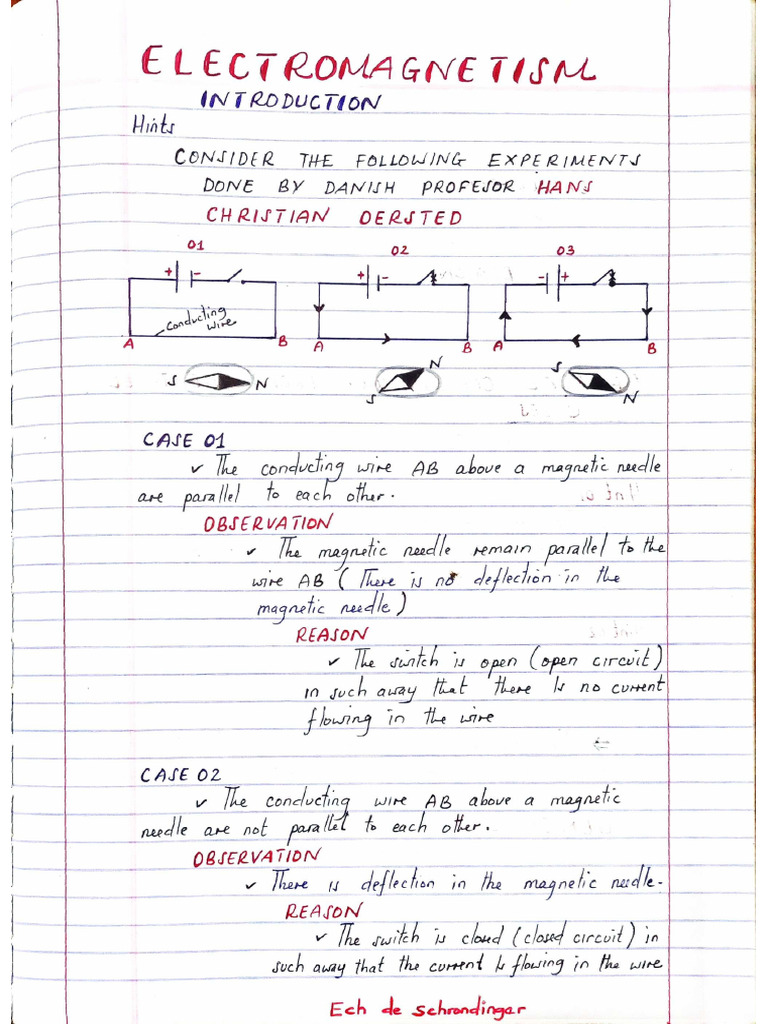 ELECTROMAGNETISM
INTRODUCTION
Hints
CONSIDER THE FOLLOWING EXPERIMENTS
DONE BY DANISH PROFESOR HANS
CHRISTIAN OERSTED
01 02 03
+ - + - - +
conducting
wire
A B A B A B
S N S N S N
CASE 01
✓ The conducting wire AB above a magnetic needle
are parallel to each other.
OBSERVATION
✓ The magnetic needle remain parallel to the
wire AB ( There is no deflection in the
magnetic needle)
REASON
✓ The switch is open (open circuit)
in such away that there Is no current
flowing in the wire
CASE 02
✓ The conducting wire AB above a magnetic
needle are not parallel to each other.
OBSERVATION
✓ There is deflection in the magnetic needle.
REASON
✓ The switch is closed (closed circuit) in
such away that the current Is flowing in the wire
Ech de Schrondingar